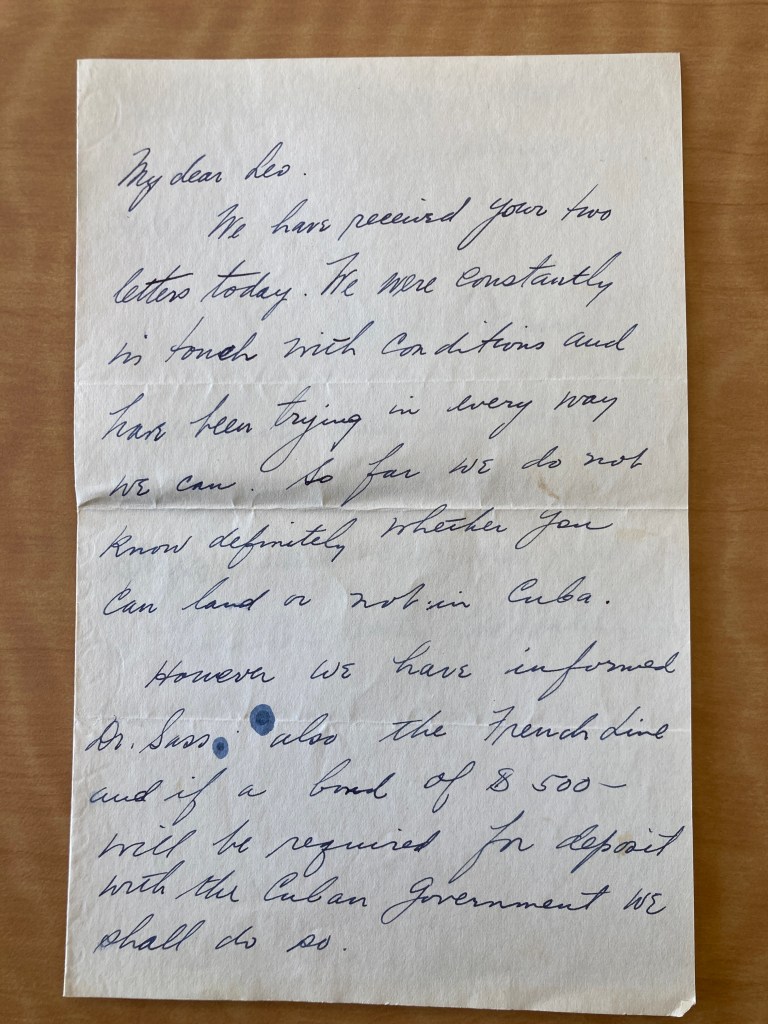 My dear Leo.
We have received your two
letters today. We were constantly
in touch with conditions and
have been trying in every way
we can. So far we do not
know definitely whether you
can land or not in Cuba.
However we have informed
Dr. Sass. also the French Line
and if a bond of $ 500-
will be required for deposit
with the Cuban Government we
shall do so.